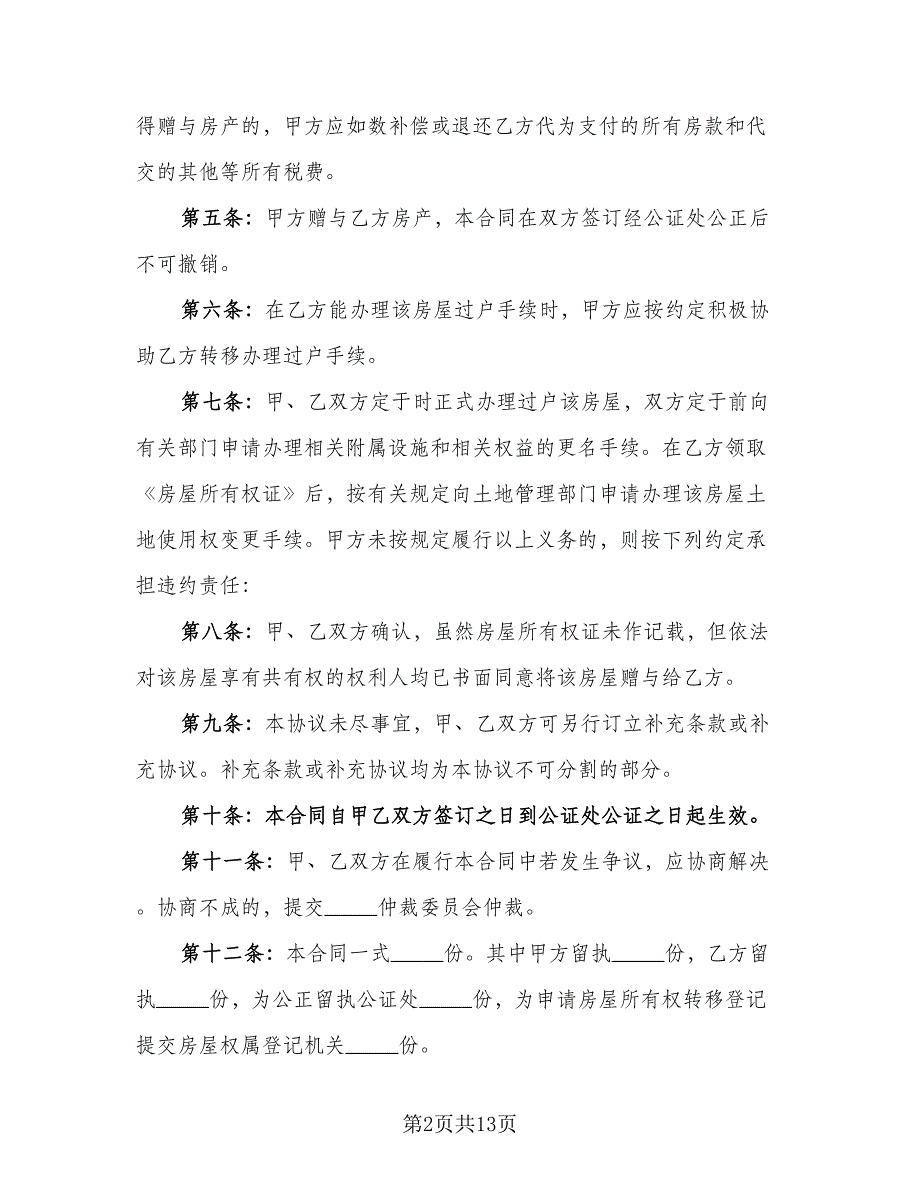 得赠与房产的，甲方应如数补偿或退还乙方代为支付的所有房款和代
交的其他等所有税费。
第五条：甲方赠与乙方房产，本合同在双方签订经公证处公正后
不可撤销。
第六条：在乙方能办理该房屋过户手续时，甲方应按约定积极协
助乙方转移办理过户手续。
第七条：甲、乙双方定于时正式办理过户该房屋，双方定于前向
有关部门申请办理相关附属设施和相关权益的更名手续。在乙方领取
《房屋所有权证》后，按有关规定向土地管理部门申请办理该房屋土
地使用权变更手续。甲方未按规定履行以上义务的，则按下列约定承
担违约责任：
第八条：甲、乙双方确认，虽然房屋所有权证未作记载，但依法
对该房屋享有共有权的权利人均已书面同意将该房屋赠与给乙方。
第九条：本协议未尽事宜，甲、乙双方可另行订立补充条款或补
充协议。补充条款或补充协议均为本协议不可分割的部分。
第十条：本合同自甲乙双方签订之日到公证处公证之日起生效。
第十一条：甲、乙双方在履行本合同中若发生争议，应协商解决
。协商不成的，提交_____仲裁委员会仲裁。
第十二条：本合同一式_____份。其中甲方留执_____份，乙方留
执_____份，为公正留执公证处_____份，为申请房屋所有权转移登记
提交房屋权属登记机关_____份。
第2页共13页